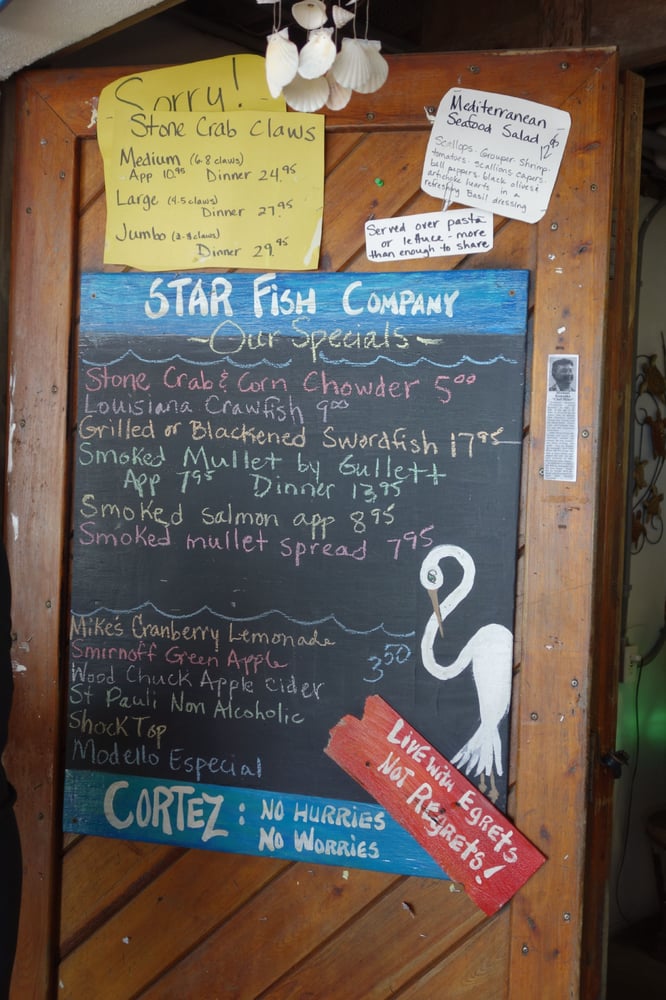 Sorry!
Stone Crab Claws
Medium (6-8 claws)
App 10.95 Dinner 24.95
Large (4-5 claws)
Dinner 27.95
Jumbo (2-3 claws)
Dinner 29.95
Mediterranean
Seafood Salad 12.95
Scallops. Grouper Shrimp.
tomatoes. scallions. capers.
bell peppers. black olives &
artichoke hearts in a
refreshing Basil dressing
Served over pasta
or lettuce - more
than enough to share
STAR FISH COMPANY
- Our Specials -
Stone Crab & Corn Chowder 5.00
Louisiana Crawfish 9.00
Grilled or Blackened Swordfish 17.95
Smoked Mullet by Gullett
App 7.95 Dinner 13.95
Smoked salmon app 8.95
Smoked mullet spread 7.95
Mike's Cranberry Lemonade
Smirnoff Green Apple
3.50
Wood Chuck Apple cider
St Pauli Non Alcoholic
Shock Top
Modello Especial
LIVE with EGRETS
NOT REGRETS!
CORTEZ: NO HURRIES
NO WORRIES